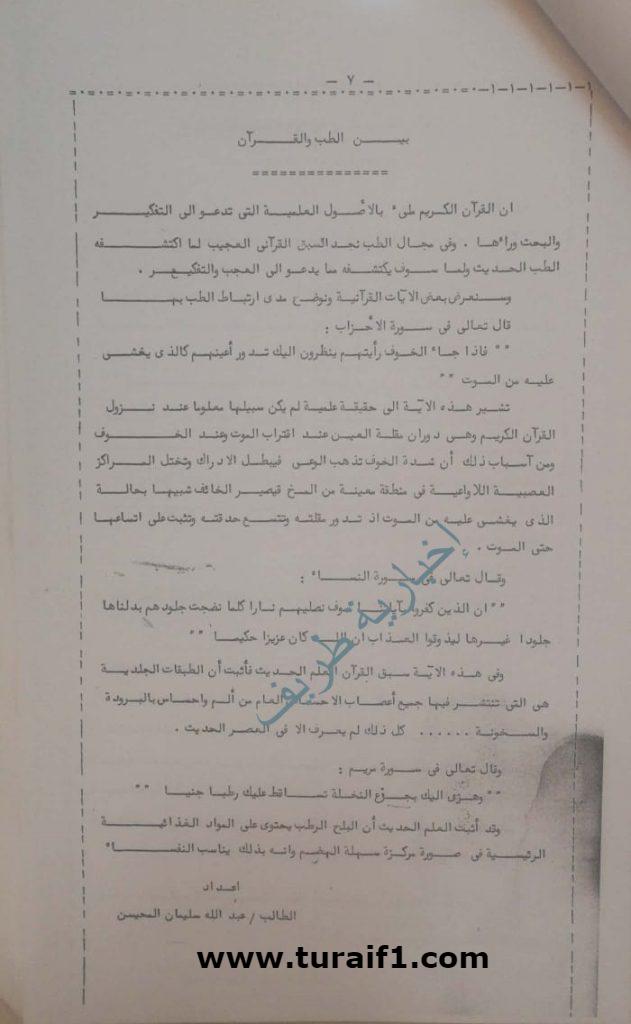 - ٧ -
بين الطب والقرآن
ان القرآن الكريم ملىء بالأصول العلمية التى تدعو الى التفكير
والبحث وراءها . وفى مجال الطب نجد السبق القرآنى العجيب لما اكتشفه
الطب الحديث ولما سوف يكتشفه مما يدعو الى العجب والتفكير .
وسنعرض بعض الآيات القرآنية ونوضح مدى ارتباط الطب بها
قال تعالى فى سورة الأحزاب :
" فاذا جاء الخوف رأيتهم ينظرون اليك تدور أعينهم كالذى يغشى
عليه من الموت "
تشير هذه الآية الى حقيقة علمية لم يكن سبيلها معلوما عند نزول
القرآن الكريم وهى دوران مقلة العين عند اقتراب الموت وعند الخوف
ومن أسباب ذلك أن شدة الخوف تذهب الوعى فيبطل الادراك وتختل المراكز
العصبية اللاواعية فى منطقة معينة من المخ فيصير الخائف شبيها بحالة
الذى يغشى عليه من الموت اذ تدور مقلته وتتسع حدقته وتثبت على اتساعها
حتى الموت .
وقال تعالى فى سورة النساء :
" ان الذين كفروا بآياتنا سوف نصليهم نارا كلما نضجت جلودهم بدلناها
جلودا غيرها ليذوقوا العذاب ان الله كان عزيزا حكيما "
وفى هذه الآية سبق القرآن العلم الحديث فأثبت أن الطبقات الجلدية
هى التى تنتشر فيها جميع أعصاب الاحساس العام من ألم واحساس بالبرودة
والسخونة ...... كل ذلك لم يعرف الا فى العصر الحديث .
وقال تعالى فى سورة مريم :
" وهزى اليك بجزع النخلة تساقط عليك رطبا جنيا "
وقد أثبت العلم الحديث أن البلح الرطب يحتوى على المواد الغذائية
الرئيسية فى صورة مركزة سهلة الهضم وانه بذلك يناسب النفساء
اعداد
الطالب / عبد الله سليمان المحيسن
إخبارية طريف
www.turaif1.com